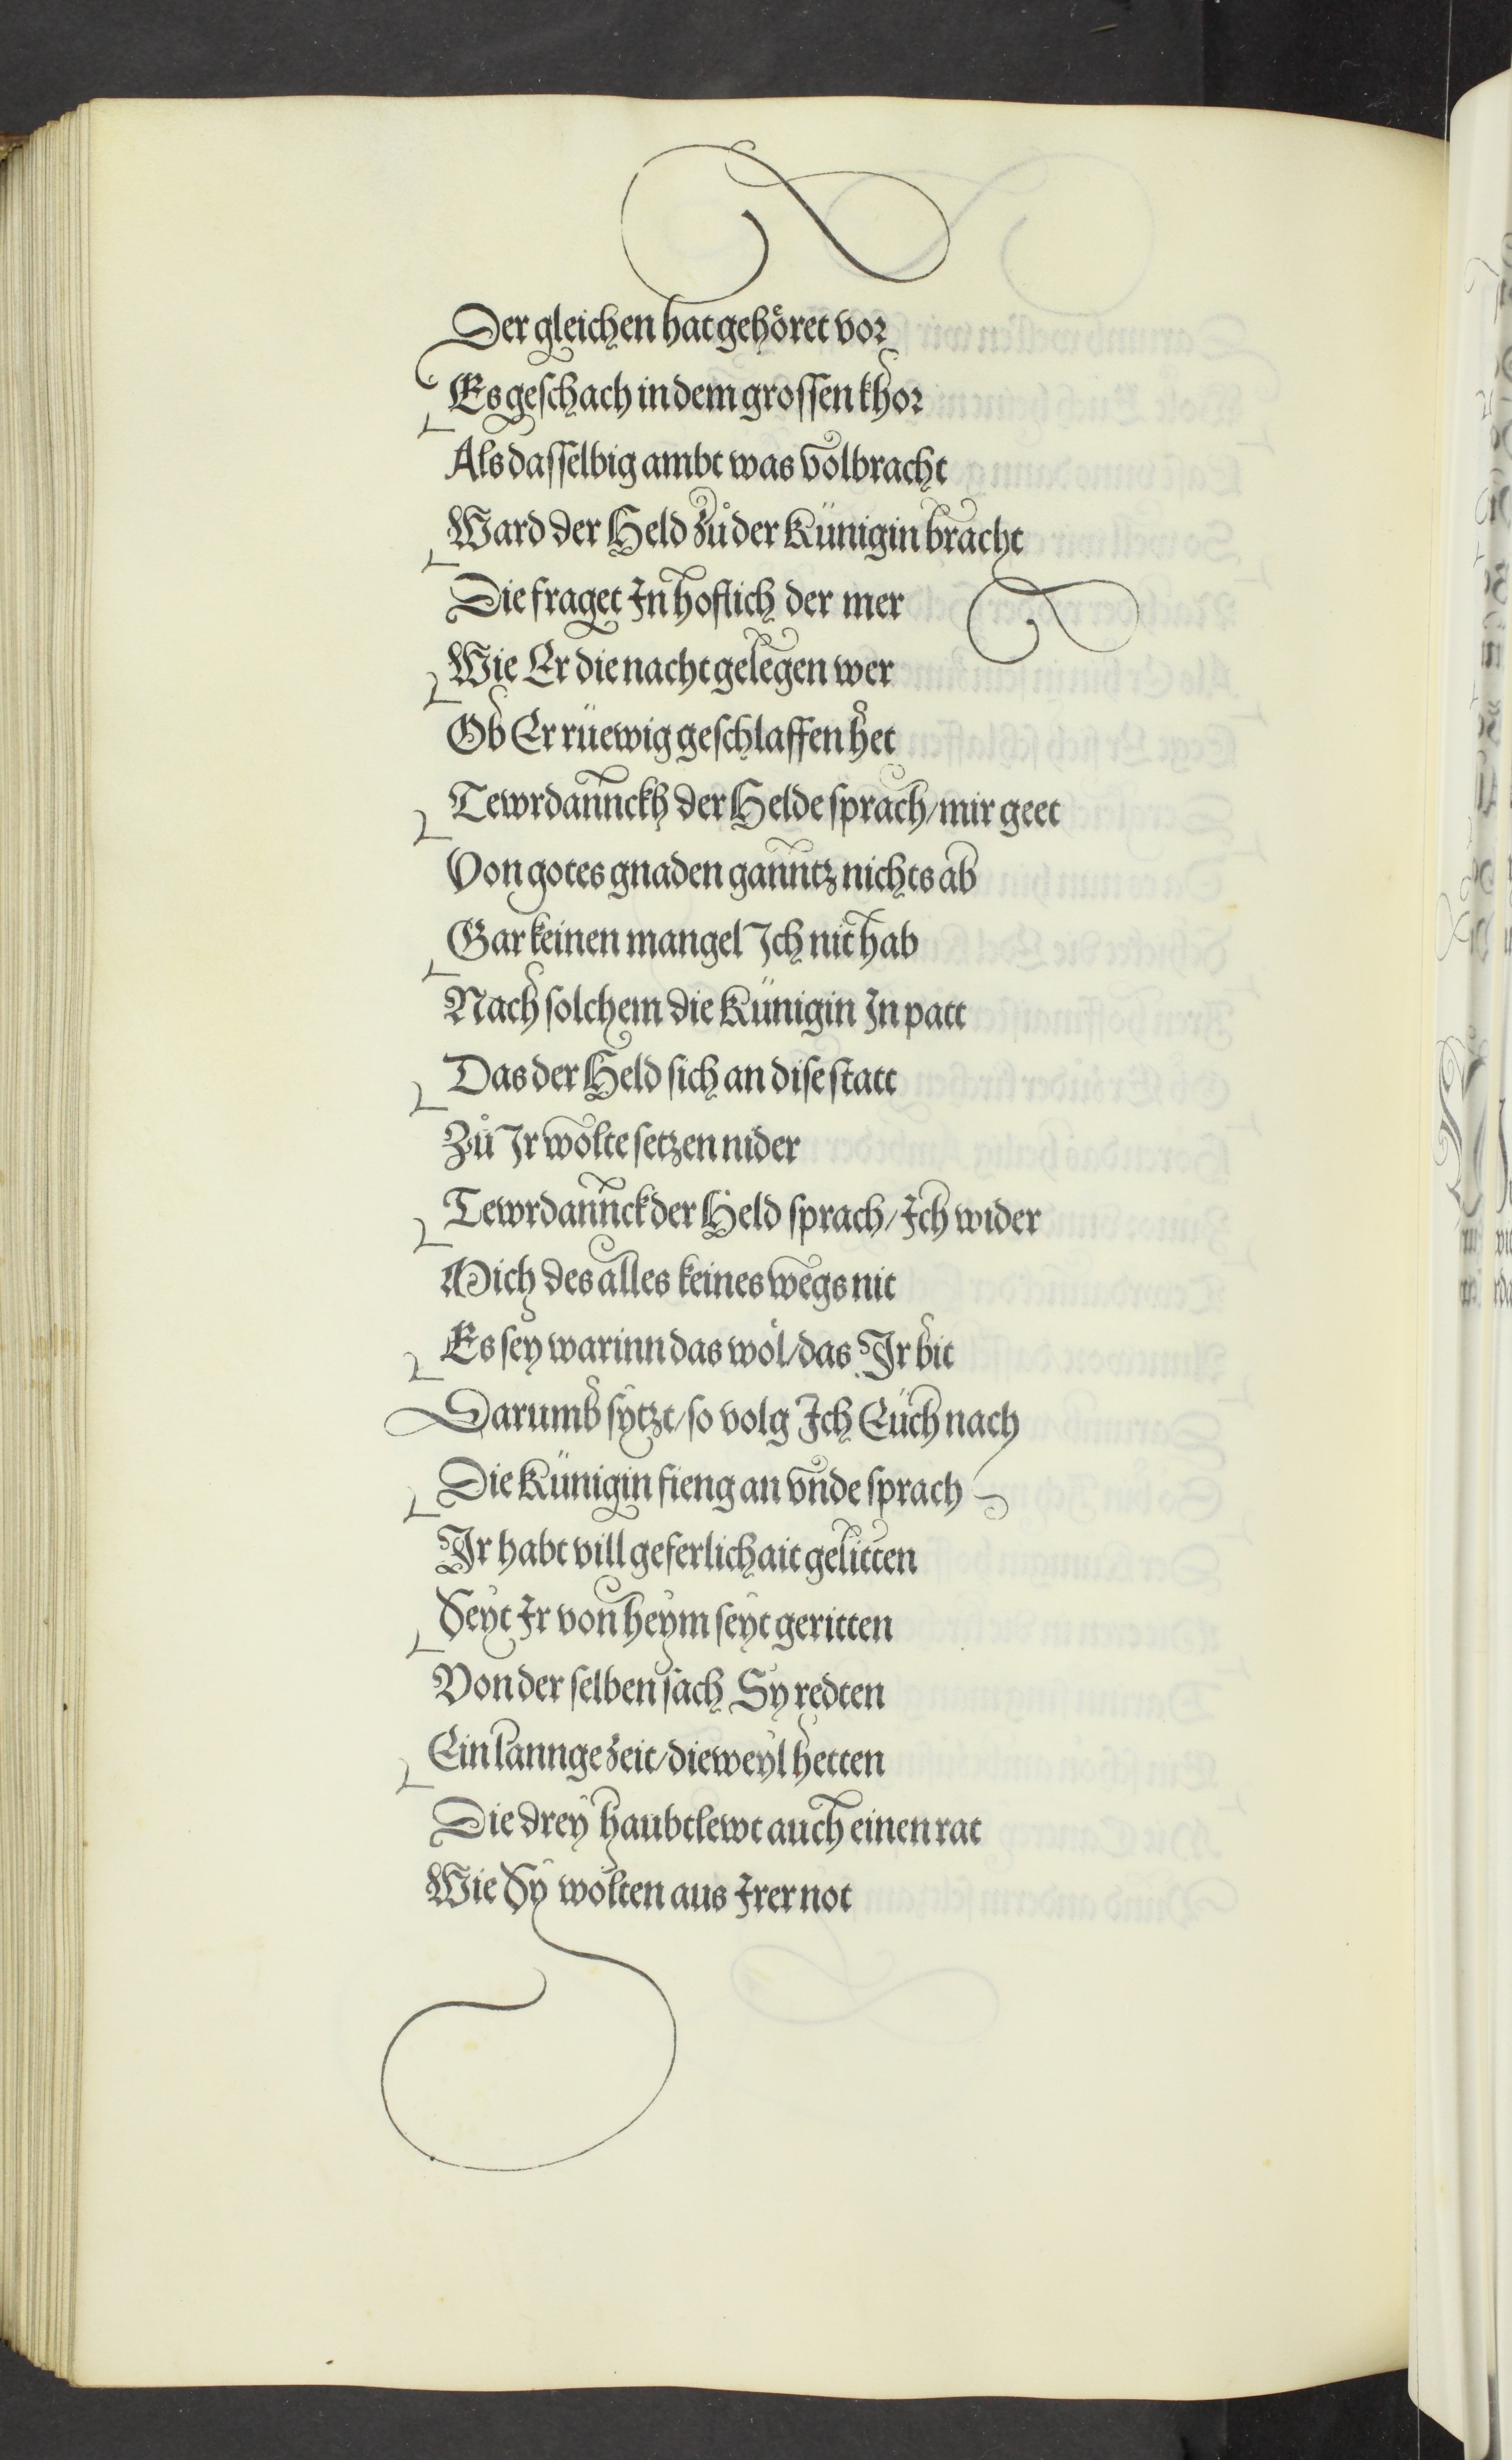 Der gleichen hat gehöret vor
Es geschach in dem grossen khor
Als dasselbig ambt was volbracht
Ward der Held zů der Künigin bracht
Die fraget In hoflich der mer
Wie Er die nacht gelegen wer
Ob Er rüewig geschlaffen het
Tewrdannckh der Helde sprach / mir geet
Von gotes gnaden ganntz nichts ab
Gar keinen mangel Ich nit hab
Nach solchem die Künigin In patt
Das der Held sich an dise statt
Zů Ir wolte setzen nider
Tewrdannck der Held sprach / Ich wider
Mich des alles keines wegs nit
Es sey warinn das wöl / das Ir bit
Darumb sytzt / so volg Ich Eüch nach
Die Künigin fieng an vnde sprach
Ir habt vill geferlichait gelitten
Seyt Ir von heym seyt geritten
Von der selben sach Sy redten
Ein lannge zeit / dieweyl hetten
Die drey haubtlewt auch einen rat
Wie Sy wolten aus Irer not